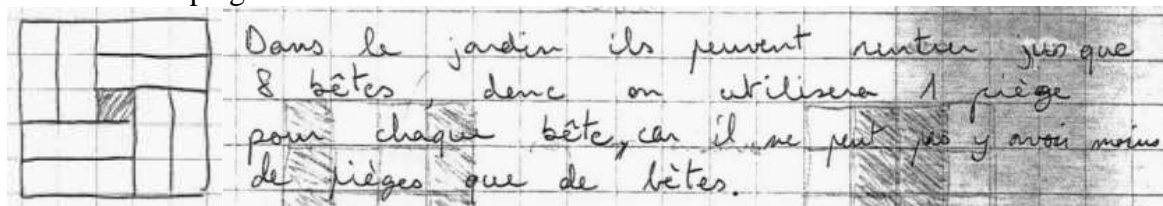 Dans le jardin ils peuvent rentrer jusque
8 bêtes, donc on utilisera 1 piège
pour chaque bête, car il ne peut pas y avoir moins
de pièges que de bêtes.